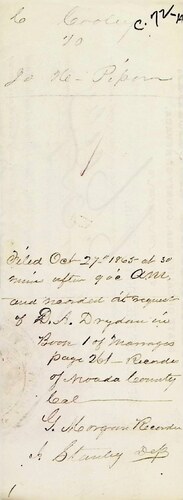 to Cooley
to
Jo H. Pipom
C. 72
Filed Oct 27th 1865 at 30
min after 9 o'c A.M.
and recorded at request
of D. A. Dryden in
Book 1 of Marriages
page 261 - Records
of Nevada County
Cal
G. Morgan Recorder
Stanley Dep